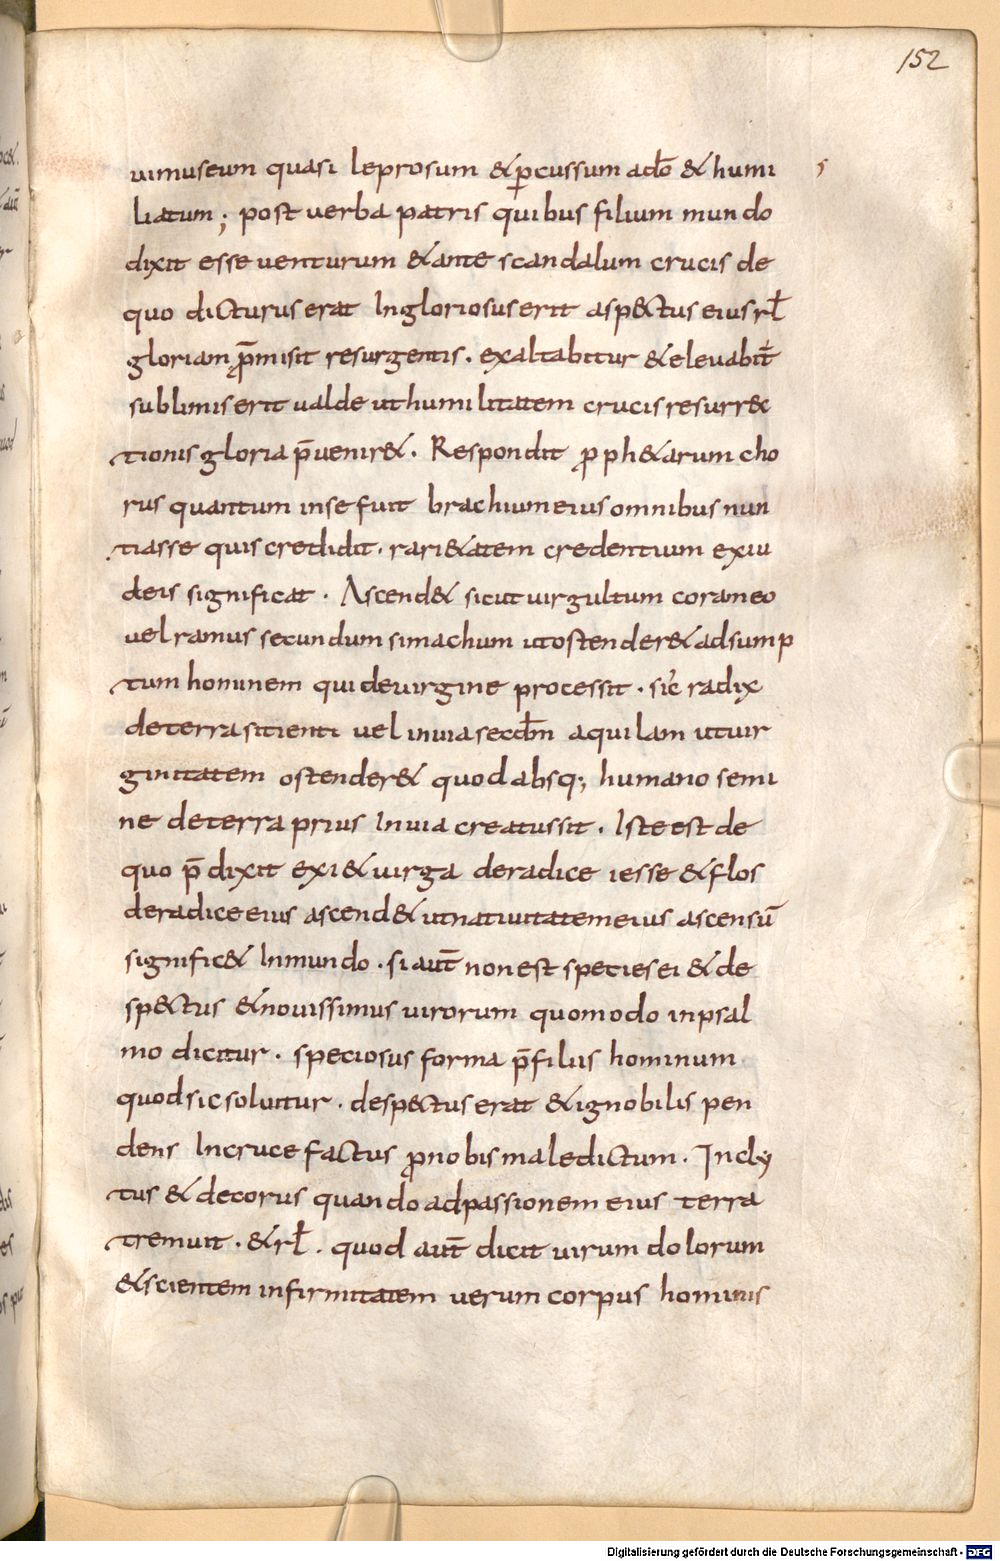 152
uimus eum quasi leprosum & p̱cussum ado̅ & humi
liatum; post uerba patris quibus filium mundo
dixit esse uenturum & ante scandalum crucis de
quo dicturus erat Ingloriosus erit asp&ctus eius rł
gloriam p̅misit resurgentis. exaltabitur & eleuabit̅
sublimis erit ualde ut humilitatem crucis resurrec
tionis gloria p̅uenir&. Respondit pph&arum cho
rus quantum in se fuit brachium eius omnibus nun
tiasse quis credidit. rari&atem credentium ex iu
deis significat. Ascend& sicut uirgultum coram eo
uel ramus secundum simachum ut ostender& adsump
tum hominem qui de uirgine processit. sic̅ radix
de terra sitienti uel inuia secd̅m aquilam ut uir
ginitatem ostender& quod absq; humano semi
ne de terra prius Inuia creatus sit. Iste est de
quo p̅dixit exi& uirga de radice iesse & flos
de radice eius ascend& ut natiuitatem eius ascensu̅
signific& In mundo. si aut̅ non est species ei & de
sp&ctus & nouissimus uirorum quomodo in psal
mo dicitur. speciosus forma p̅ filiis hominum
quod sic soluitur. desp&ctus erat & ignobilis pen
dens In cruce factus pro nobis maledictum. Incly
tus & decorus quando ad passionem eius terra
tremuit. & rł. quod aut̅ dicit uirum dolorum
& scientem infirmitatem uerum corpus hominis
Digitalisierung gefördert durch die Deutsche Forschungsgemeinschaft - DFG